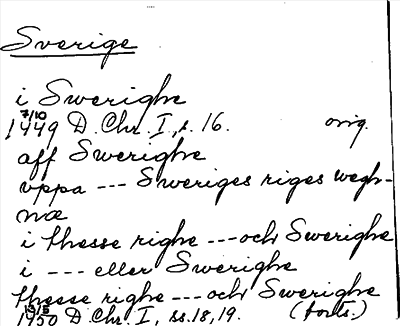 Sverige
i Swerighe
7/10
1449 D. Chr. I, s. 16. orig.
aff Swerighe
vppa --- Sweriges riges wegh-
næ
i thesse righe --- och Swerighe
i --- eller Swerighe
thesse righe --- och Swerighe
1450 D. Chr. I, ss. 18, 19. (forts.)